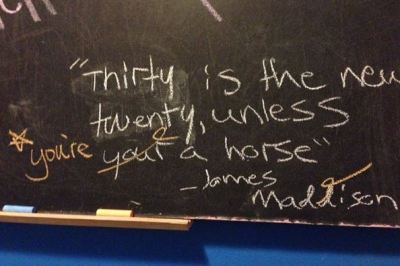 "Thirty is the new
twenty, unless
*you're your a horse"
-James
Maddison